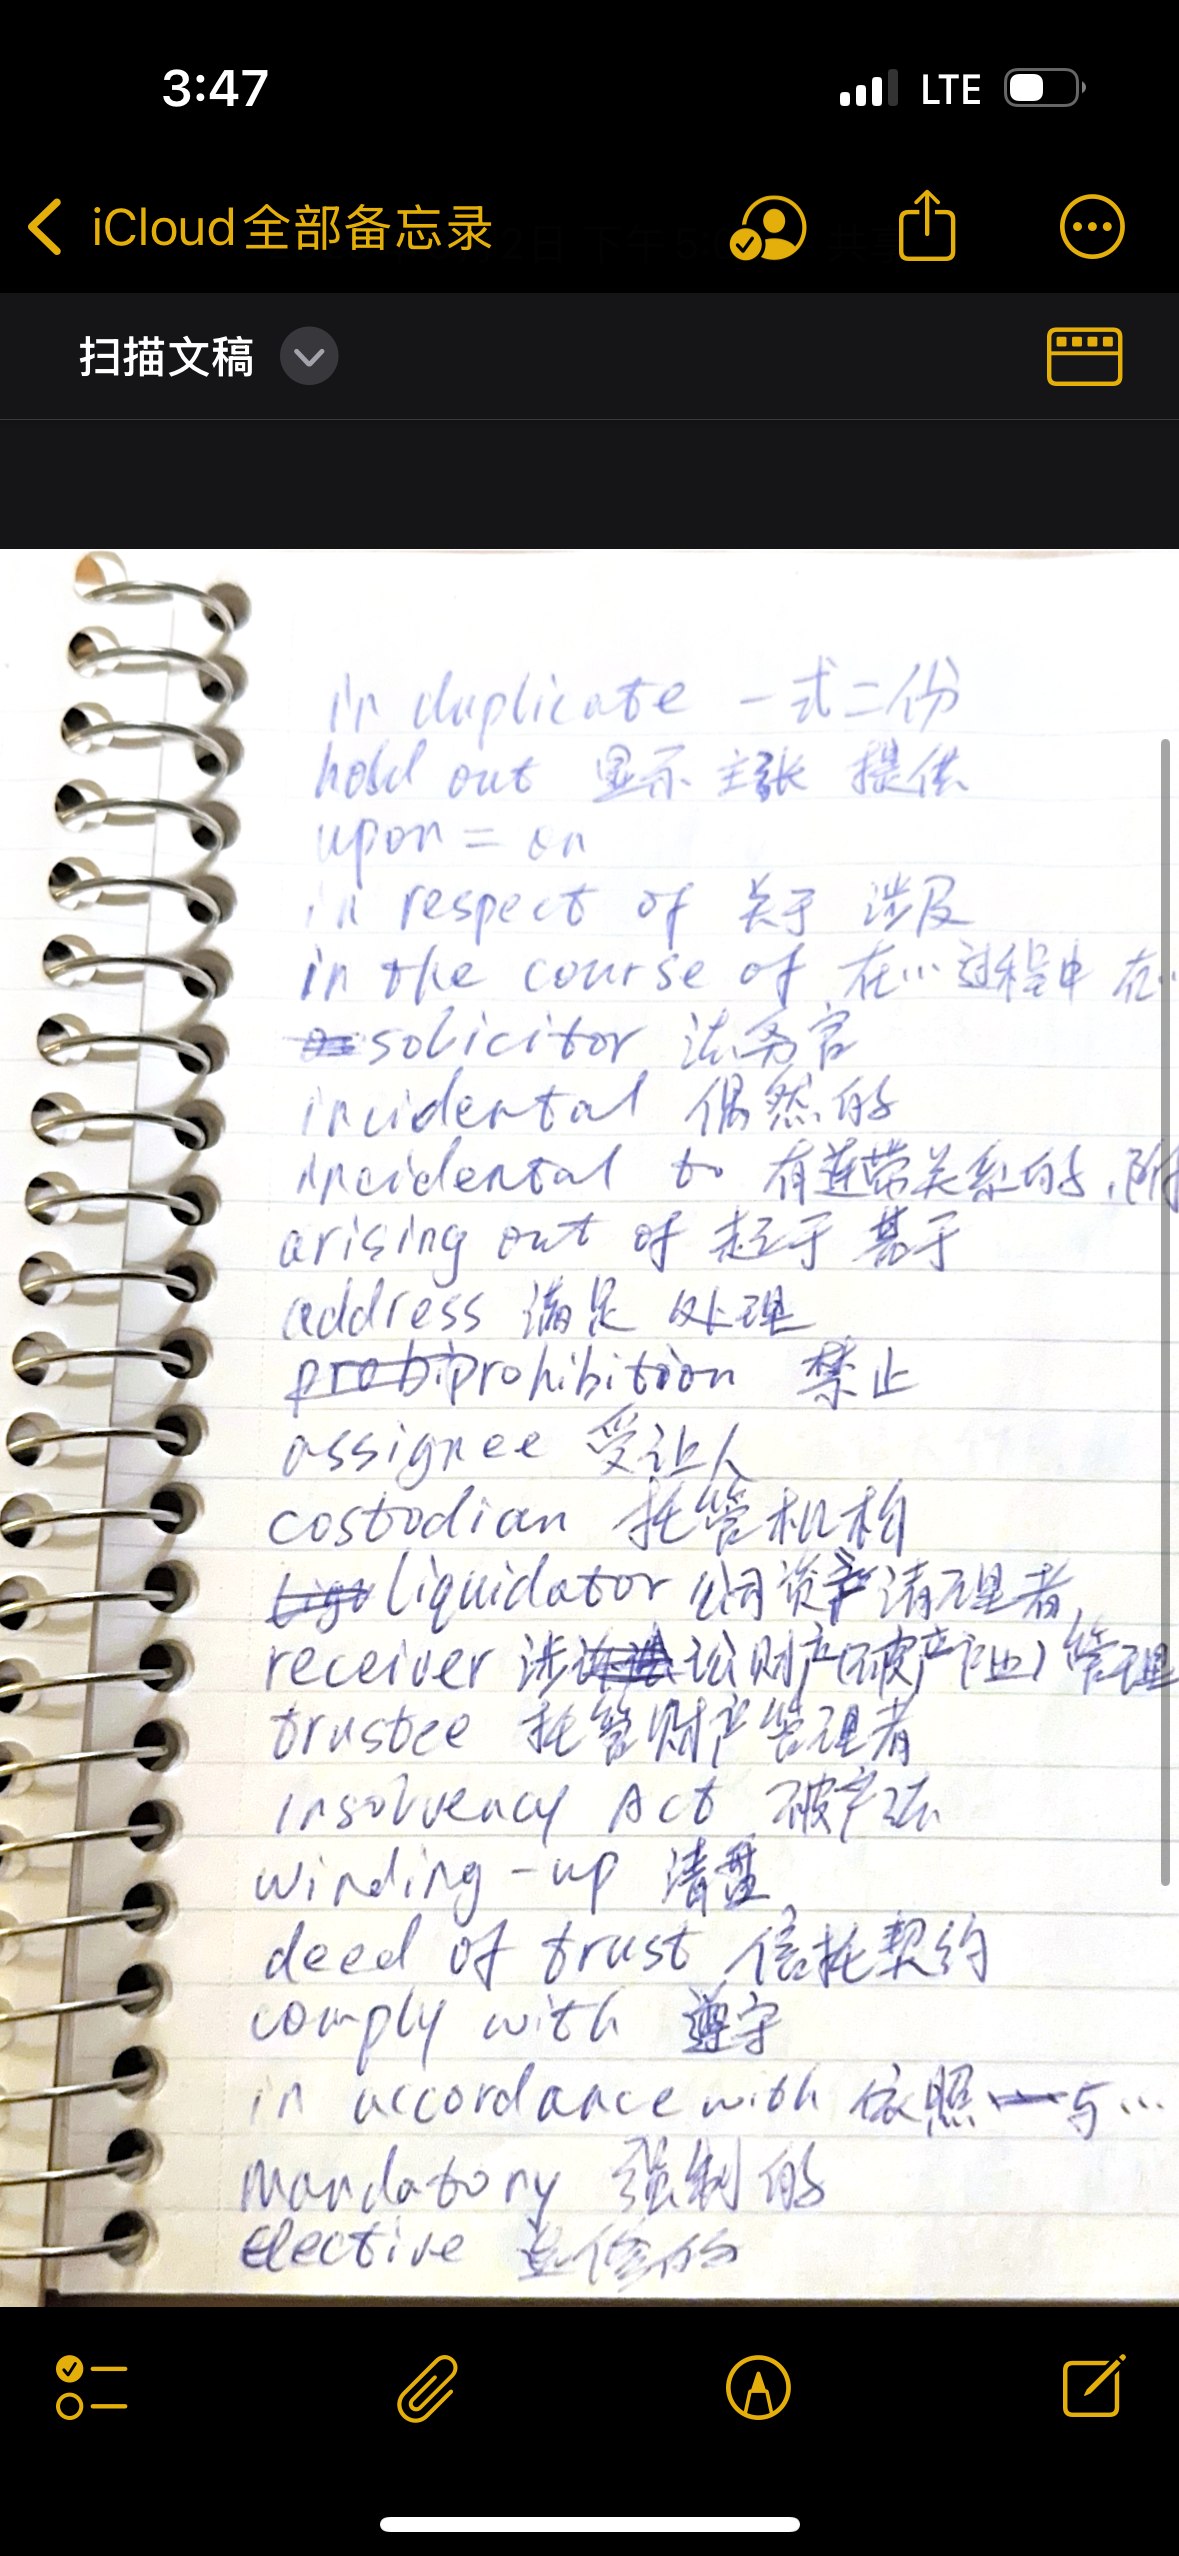 3:47 LTE
iCloud全部备忘录
扫描文稿
in duplicate 一式二份
hold out 显示 主张 提供
upon = on
in respect of 关于 涉及
in the course of 在…过程中 在…
solicitor 法务官
incidental 偶然的
incidental to 有连带关系的,附
arising out of 起于 基于
address 满足 处理
prohibition 禁止
assignee 受让人
costodian 托管机构
liquidator 公司资产清理者
receiver 涉讼财产(破产产业)管理
trustee 托管财产管理者
insolvency Act 破产法
winding-up 清盘
deed of trust 信托契约
comply with 遵守
in accordance with 依照 与…
mandatory 强制的
Elective